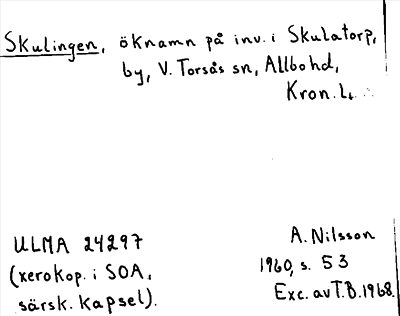 Skulingen, öknamn på inv. i Skulatorp,
by, V. Torsås sn, Allbo hd,
Kron. L.
ULMA 24297
(xerokop. i SOA,
särsk. kapsel).
A. Nilsson
1960, s. 53
Exc. av T.B. 1968.